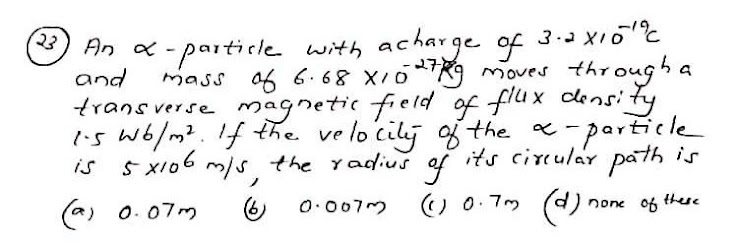 (23) An α-particle with a charge of 3.2 X10⁻¹⁹C
and mass of 6.68 X10⁻²⁷Kg moves through a
transverse magnetic field of flux density
1.5 Wb/m². If the velocity of the α-particle
is 5 x10⁶ m/s, the radius of its circular path is
(a) 0.07m (b) 0.007m (c) 0.7m (d) none of these